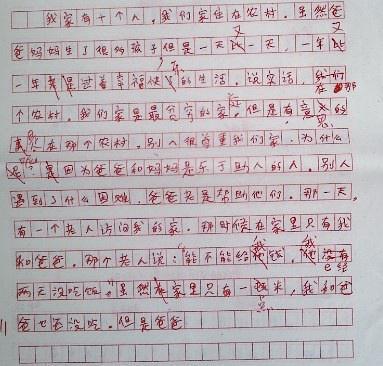 我家有十个人，我们家住在农村。虽然爸
爸妈妈生了很多孩子但是一天又一天，一年又
一年都是过着幸福快乐的生活。说实话，我们在那
个农村，我们家是最贫穷的家庭。但是有意思的
是在那个农村，别人很尊重我们家。为什么
呢？是因为爸爸和妈妈是乐于助人的人。别人
遇到了什么困难，爸爸老是帮助他们。那一天，
有一个老人访问我的家。那时候在家里只有我
和爸爸，那个老人说："能不能给我钱，我没有
两天没吃饭。"虽然家里只有一点米，我和爸
爸也还没吃，但是爸爸